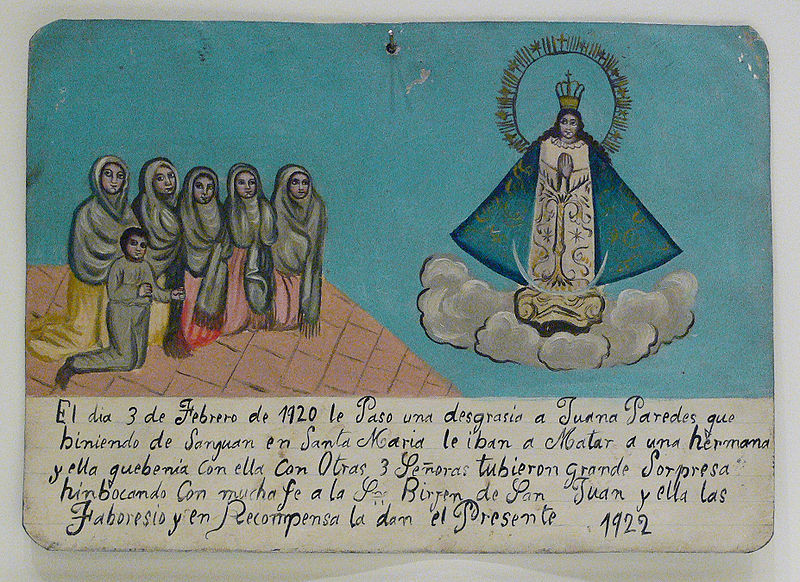 El dia 3 de Febrero de 1920 le Paso una desgrasia a Juana Paredes que
biniendo de Sanguan en Santa Maria le iban a Matar a una hermana
y ella quebenia Con ella Con Otras 3 Señoras tubieron grande Sorpresa
hinbocando Con mucha fe a la Sra Birjen de San Juan y ella las
Faboresio y en Recompensa la dan el Presente 1922